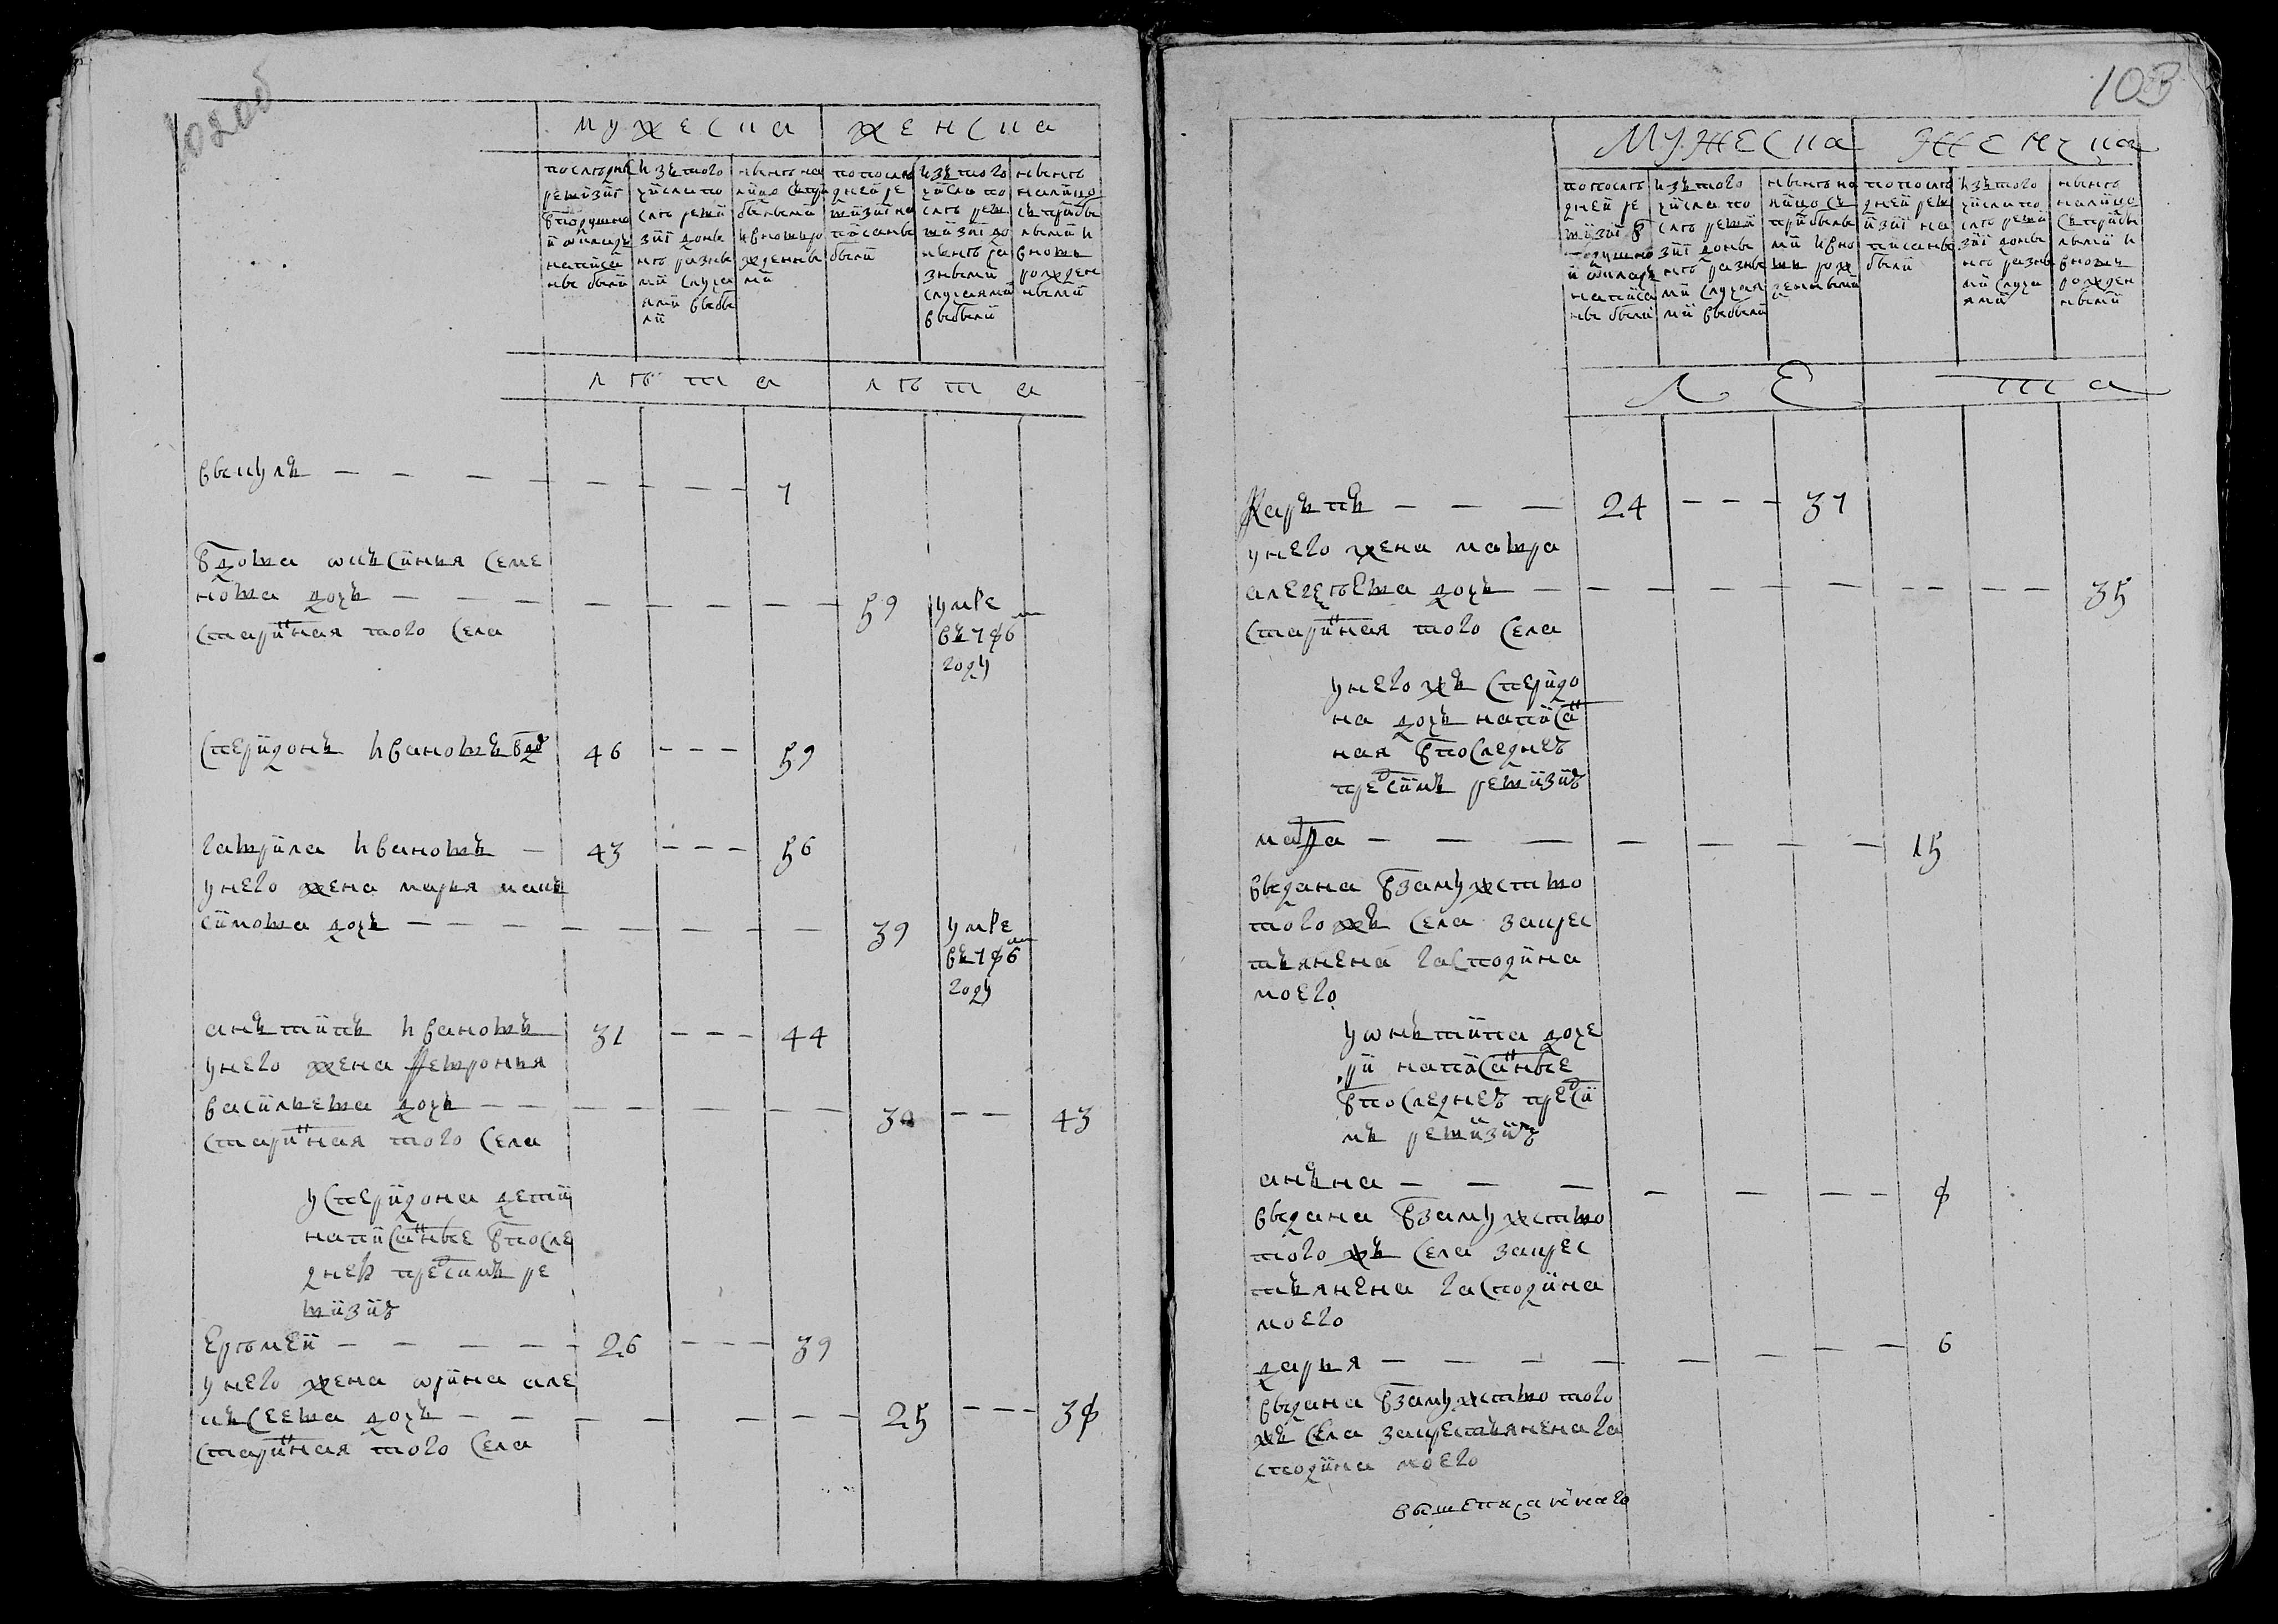 102об
мужеска женска
последне
ревизiг
в подушно
й окладъ
написа
ны были
изътого
числа по
слѣ реви
зiг доны
нѣ разны
ми случа
ями выбы
ли
нынѣ на
лицо съ при
былыми
и вновь ро
жденны
ми
по после
дней ре
визiи на
писаны
были
изъ того
числа по
слѣ ре
визiг до
нынѣ ра
зными
случаями
выбыли
нынѣ
налицо
съ прибы
лыми и
вновь
рожден
ными
лѣта лѣта
викулъ 7
вдова оксинья семе
нова дочь 59 умре
старинная того села въ 786м
году
сперидонъ ивановъ вдо 46 59
гаврила ивановъ 43 56
у него жена марья мак
симова дочь 39 умре
въ 786м
году
анътипъ ивановъ 31 44
у него жена февронья
васильева дочь 30 43
старинная того села
у сперидона дети
написанные в после
дней пред симъ ре
визiи
ерѣмей 26 39
у него жена орина але
ксеева дочь 25 38
старинная того села
103
мужеска женска
по послѣ
дней ре
визiг в
подушно
й окладъ
написа
ны были
изъ того
числа по
слѣ реви
зiг доны
нѣ разны
ми случая
ми выбыли
нынѣ на
лицо съ
прибылы
ми и вно
вь рож
денными
по послѣ
дней рев
изiг на
писаны
были
изъ того
числа по
слѣ реви
зiг доны
нѣ разны
ми случа
ями
нынѣ
налицо
съ прибы
лыми и
вновь
рожден
ными
Ле та
Каръпъ 24 37
у него жена мавра
алегѣева дочь 35
старинная того села
у него жъ сперидо
на дочь написан
ная в последней
пред симъ ревизiи
мавра 15
выдана в замужство
того жъ села за крес
тьянена гасподина
моего
у онътипа доче
ри написанные
в последней пред си
мъ ревизiи
анъна 8
выдана в замужство
того жъ села за крес
тьянена гасподина
моего
дарья 6
выдана в замужство того
жъ села за крестьянена га
сподина моего
вышеписанного